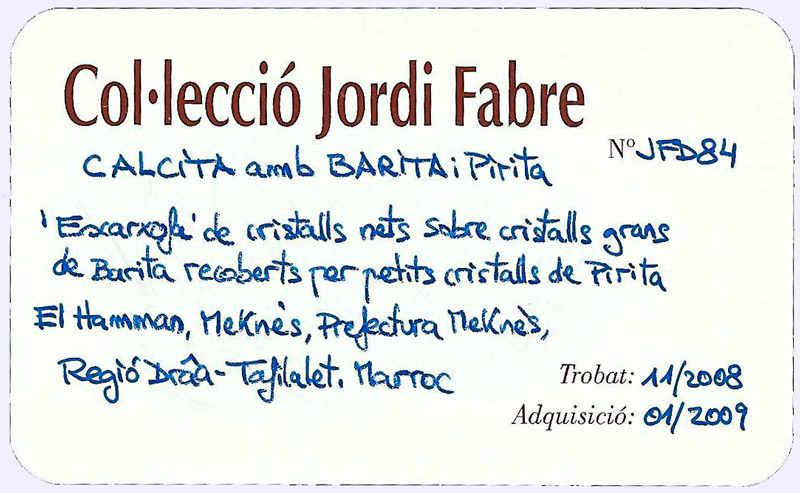 Col·lecció Jordi Fabre
Nº JFD84
CALCITA amb BARITA i Pirita
'Escarxofa' de cristalls nets sobre cristalls grans
de Barita recoberts per petits cristalls de Pirita
El Hamman, Meknès, Prefectura Meknès,
Regió Drâa-Tafilalet. Marroc
Trobat: 11/2008
Adquisició: 01/2009